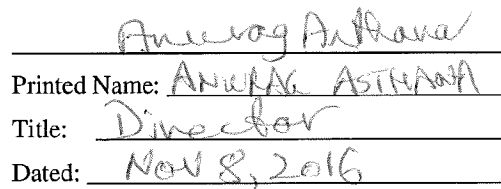 Anurag Asthana
Printed Name: ANURAG ASTHANA
Title: Director
Dated: Nov 8, 2016